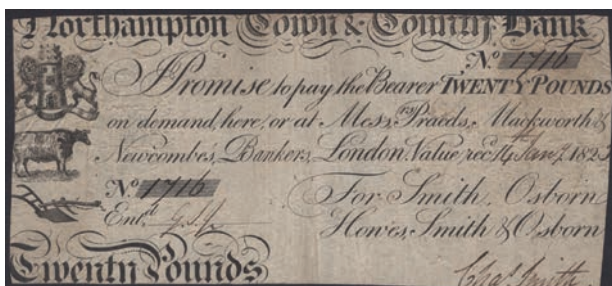 Northampton Town & County Bank
No. 1716
I Promise to pay the Bearer TWENTY POUNDS
on demand, here, or at Messrs. Praeds, Mackworth &
Newcombe's, Bankers, London, Value recd. 14th Jany. 182
No. 1716
For Smith, Osborn
Entd.
Howes, Smith & Osborn
Twenty Pounds
Chas. Smith